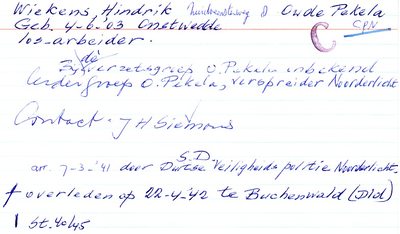 Wiekens Hindrik 8 Oude Pekela
CPN
Geb. 4-6-'03 Onstwedde
los-arbeider.
C
de
Zijn verzetsgroep O. Pekela onbekend
Leidergroep O. Pekela, verspreider Noorderlicht
Contact - J H Siemons
S.D.
arr. 7-3-'41 door Duitse Veiligheidspolitie Noorderlicht.
† overleden op 22-4-'42 te Buchenwald (Dld)
St. 40/45